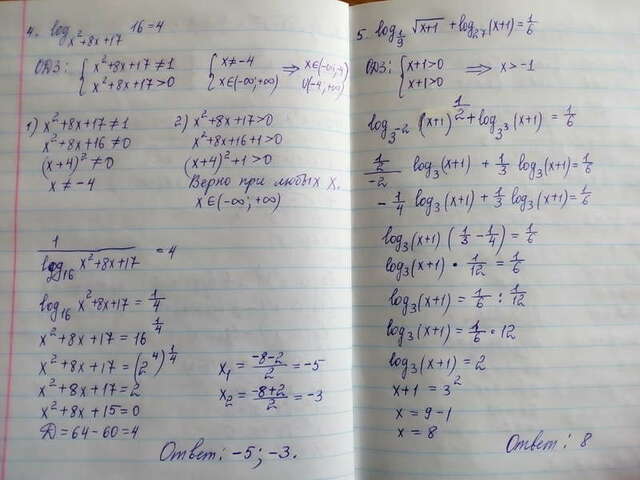 4. log_{x²+8x+17} 16 = 4
ОДЗ: { x²+8x+17 ≠ 1 { x ≠ -4 ⇒ x∈(-∞;-4)
x²+8x+17 > 0 x∈(-∞;+∞) ∪(-4;+∞)
1) x²+8x+17 ≠ 1
x²+8x+16 ≠ 0
(x+4)² ≠ 0
x ≠ -4
2) x²+8x+17 > 0
x²+8x+16+1 > 0
(x+4)²+1 > 0
Верно при любых x.
x∈(-∞;+∞)
1/(log₁₆ x²+8x+17) = 4
log₁₆ x²+8x+17 = 1/4
x²+8x+17 = 16^{1/4}
x²+8x+17 = (2⁴)^{1/4}
x²+8x+17 = 2
x²+8x+15 = 0
D = 64-60 = 4
x₁ = (-8-2)/2 = -5
x₂ = (-8+2)/2 = -3
Ответ: -5; -3.
5. log_{1/9} √(x+1) + log₂₇(x+1) = 1/6
ОДЗ: { x+1>0 ⇒ x>-1
x+1>0
log_{3⁻²} (x+1)^{1/2} + log_{3³} (x+1) = 1/6
(1/2)/(-2) log₃(x+1) + 1/3 log₃(x+1) = 1/6
- 1/4 log₃(x+1) + 1/3 log₃(x+1) = 1/6
log₃(x+1) (1/3 - 1/4) = 1/6
log₃(x+1) · 1/12 = 1/6
log₃(x+1) = 1/6 : 1/12
log₃(x+1) = 1/6 · 12
log₃(x+1) = 2
x+1 = 3²
x = 9-1
x = 8
Ответ: 8